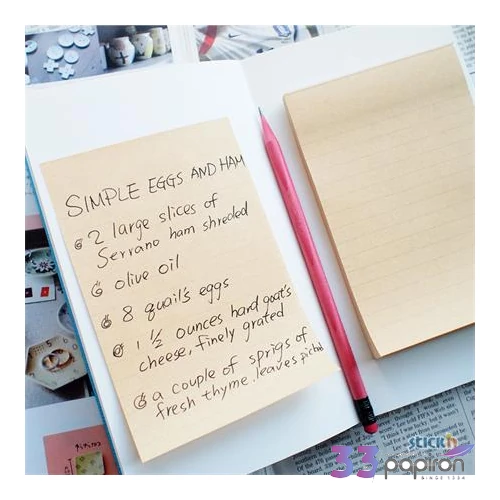 SIMPLE EGGS AND HAM
2 large slices of
Serrano ham shreded
olive oil
8 quail's eggs
1 1/2 ounces hard goat's
cheese, finely grated
a couple of sprigs of
fresh thyme. leaves picked
STICK'N
33 papiron
SINCE 1984